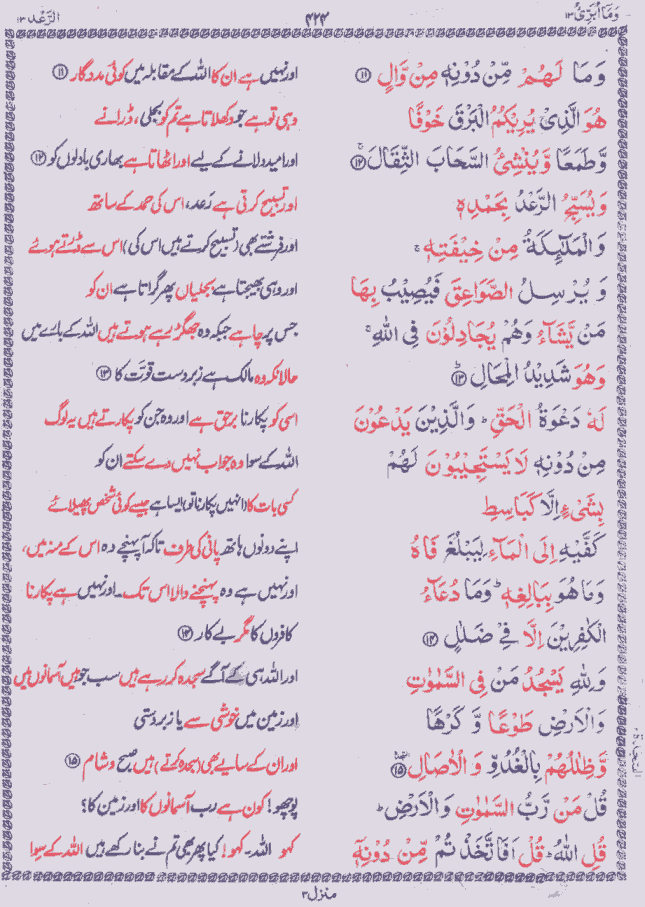 وَمَاۤ اُبَرِّئُ ۱۳ ۳۲۳ الرَّعْد ۱۳
وَمَا لَهُمْ مِّنْ دُوْنِهٖ مِنْ وَّالٍ ⑪ اور نہیں ہے ان کا اللہ کے مقابلہ میں کوئی مددگار ⑪
هُوَ الَّذِیْ یُرِیْكُمُ الْبَرْقَ خَوْفًا وہی تو ہے جو دکھلاتا ہے تم کو بجلی، ڈرانے
وَّطَمَعًا وَّیُنْشِئُ السَّحَابَ الثِّقَالَ ⑫ اور امید دلانے کے لیے اور اٹھاتا ہے بھاری بادلوں کو ⑫
وَیُسَبِّحُ الرَّعْدُ بِحَمْدِهٖ اور تسبیح کرتی ہے رَعد، اس کی حمد کے ساتھ
وَالْمَلٰٓئِكَةُ مِنْ خِیْفَتِهٖ ۚ اور فرشتے بھی (تسبیح کرتے ہیں اس کی) اس سے ڈرتے ہوئے
وَیُرْسِلُ الصَّوَاعِقَ فَیُصِیْبُ بِهَا اور وہی بھیجتا ہے بجلیاں پھر گراتا ہے ان کو
مَنْ یَّشَآءُ وَهُمْ یُجَادِلُوْنَ فِی اللّٰهِ ۚ جس پر چاہے جبکہ وہ جھگڑ رہے ہوتے ہیں اللہ کے بارے میں
وَهُوَ شَدِیْدُ الْمِحَالِ ⑬ حالانکہ وہ مالک ہے زبردست قوّت کا ⑬
لَهٗ دَعْوَةُ الْحَقِّ ؕ وَالَّذِیْنَ یَدْعُوْنَ اسی کو پکارنا برحق ہے اور وہ جن کو پکارتے ہیں یہ لوگ
مِنْ دُوْنِهٖ لَا یَسْتَجِیْبُوْنَ لَهُمْ اللہ کے سوا وہ جواب نہیں دے سکتے ان کو
بِشَیْءٍ اِلَّا كَبَاسِطِ کسی بات کا (انہیں پکارنا تو) ایسا ہے جیسے کوئی شخص پھیلائے
كَفَّیْهِ اِلَی الْمَآءِ لِیَبْلُغَ فَاهُ اپنے دونوں ہاتھ پانی کی طرف تاکہ آ پہنچے وہ اس کے منہ میں،
وَمَا هُوَ بِبَالِغِهٖ ؕ وَمَا دُعَآءُ اور نہیں ہے وہ پہنچنے والا اس تک۔ اور نہیں ہے پکارنا
الْكٰفِرِیْنَ اِلَّا فِیْ ضَلٰلٍ ⑭ کافروں کا مگر بے کار ⑭
وَلِلّٰهِ یَسْجُدُ مَنْ فِی السَّمٰوٰتِ اور اللہ ہی کے آگے سجدہ کر رہے ہیں سب جو ہیں آسمانوں میں
وَالْاَرْضِ طَوْعًا وَّكَرْهًا اور زمین میں خوشی سے یا زبردستی
وَّظِلٰلُهُمْ بِالْغُدُوِّ وَالْاٰصَالِ ⑮ اور ان کے سایے بھی (سجدہ کرتے) ہیں صبح و شام ⑮
قُلْ مَنْ رَّبُّ السَّمٰوٰتِ وَالْاَرْضِ ؕ پوچھو! کون ہے رب آسمانوں کا اور زمین کا؟
قُلِ اللّٰهُ ؕ قُلْ اَفَاتَّخَذْتُمْ مِّنْ دُوْنِهٖۤ کہو اللہ۔ کہو! کیا پھر بھی تم نے بنا رکھے ہیں اللہ کے سوا
السجدة
منزل ۳